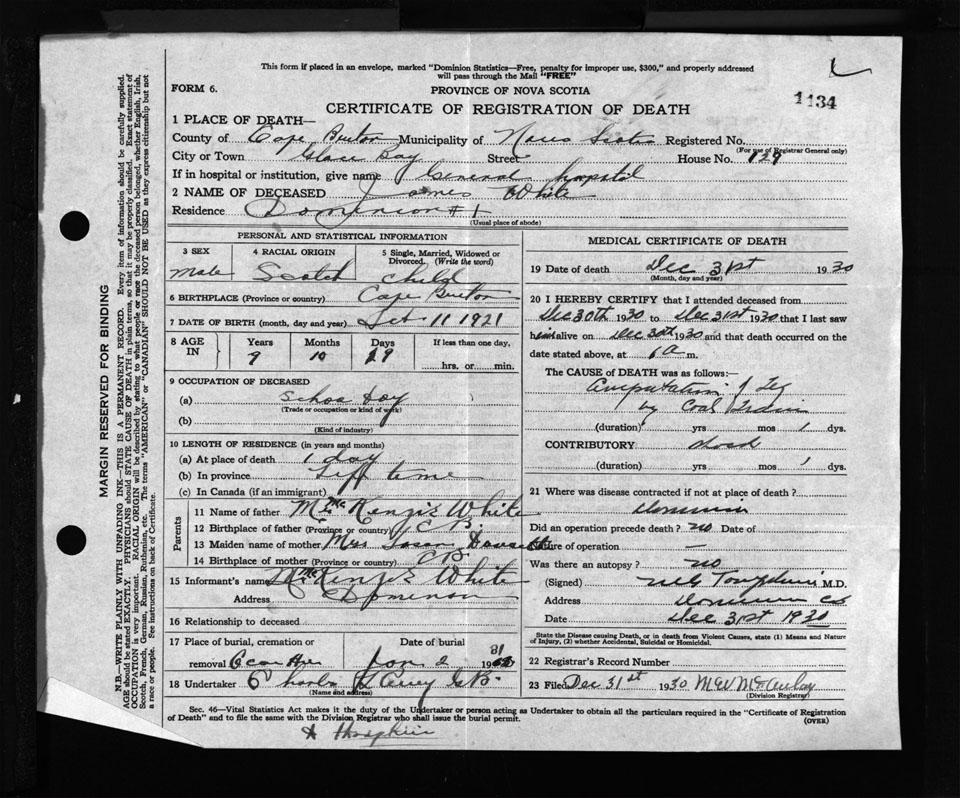 This form if placed in an envelope, marked "Dominion Statistics—Free, penalty for improper use, $300," and properly addressed
will pass through the Mail "FREE"
FORM 6.
PROVINCE OF NOVA SCOTIA
1134
CERTIFICATE OF REGISTRATION OF DEATH
1 PLACE OF DEATH—
County of Cape Breton Municipality of Nova Scotia Registered No.
(For use of Registrar General only)
City or Town Glace Bay Street House No. 129
If in hospital or institution, give name General hospital
2 NAME OF DECEASED James White
Residence Dominion # 1
(Usual place of abode)
PERSONAL AND STATISTICAL INFORMATION
3 SEX Male
4 RACIAL ORIGIN Scotch
5 Single, Married, Widowed or Divorced. (Write the word) child
6 BIRTHPLACE (Province or country) Cape Breton
7 DATE OF BIRTH (month, day and year) 11 1921
8 AGE IN
Years Months Days If less than one day,
9 10 19 hrs. or min.
9 OCCUPATION OF DECEASED
(a) School boy
(Trade or occupation or kind of work)
(b)
(Kind of industry)
10 LENGTH OF RESIDENCE (in years and months)
(a) At place of death 1 day
(b) In province Life time
(c) In Canada (if an immigrant)
Parents
11 Name of father McKenzie White
12 Birthplace of father (Province or country) C B.
13 Maiden name of mother Mrs
14 Birthplace of mother (Province or country) C B.
15 Informant's name McKenzie White
Address Dominion
16 Relationship to deceased
17 Place of burial, cremation or Date of burial
removal Jan 2 1931
18 Undertaker Charles
(Name and address)
MEDICAL CERTIFICATE OF DEATH
19 Date of death Dec 31st 1930
(Month, day and year)
20 I HEREBY CERTIFY that I attended deceased from
Dec 30th 1930 to Dec 31st 1930 that I last saw
him alive on Dec 30th 1930 and that death occurred on the
date stated above, at 6 a m.
The CAUSE OF DEATH was as follows:
Amputation of Leg
by Coal Train
(duration) yrs mos 1 dys.
CONTRIBUTORY Shock
(duration) yrs mos 1 dys.
21 Where was disease contracted if not at place of death?
Dominion
Did an operation precede death? no Date of
Nature of operation —
Was there an autopsy? no
(Signed) M.D.
Address Dominion CB
Date Dec 31st 1930
State the Disease causing Death, or in death from Violent Causes, state (1) Means and Nature
of Injury, (2) whether Accidental, Suicidal or Homicidal.
22 Registrar's Record Number
23 Filed Dec 31st 1930
(Division Registrar)
Sec. 46—Vital Statistics Act makes it the duty of the Undertaker or person acting as Undertaker to obtain all the particulars required in the "Certificate of Registration
of Death" and to file the same with the Division Registrar who shall issue the burial permit.
(OVER)
MARGIN RESERVED FOR BINDING
N.B.—WRITE PLAINLY WITH UNFADING INK—THIS IS A PERMANENT RECORD. Every item of information should be carefully supplied.
AGE should be stated EXACTLY. PHYSICIANS should STATE CAUSE OF DEATH in plain terms, so that it may be properly classified. Exact statement of
OCCUPATION is very important. RACIAL ORIGIN will be described by stating to what people or race the deceased person belonged, whether English, Irish,
Scotch, French, German, Russian, Ruthenian, etc. The terms "AMERICAN" or "CANADIAN" SHOULD NOT BE USED as they express citizenship but not
a race or people. See instructions on back of Certificate.